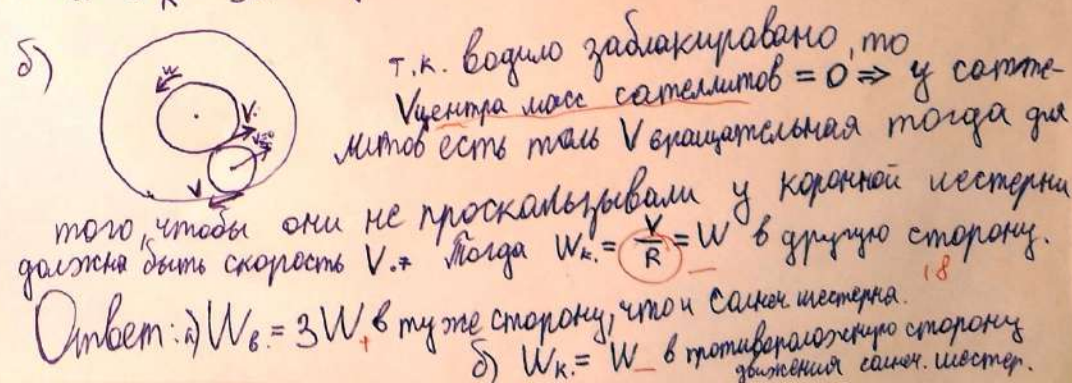 б)
т.к. водило заблакировано, то
Vцентра масс сателлитов = 0 ⇒ у сателлитов есть толь V вращательная тогда для
того, чтобы они не проскальзывали у коронной шестерни
должна быть скорость V. Тогда Wк. = V/R = W в другую сторону.
18
Ответ: а) Wв. = 3W + в туже сторону, что и солнеч шестерня.
б) Wк. = W в противоположную сторону
движения солнеч. шестер.
W
V
V=0
V